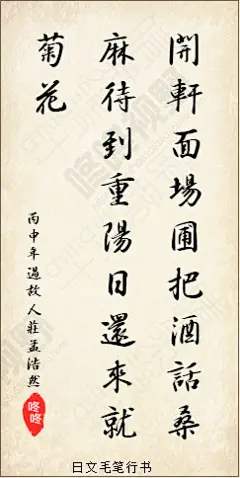 開軒面場圃把酒話桑
麻待到重陽日還來就
菊花
丙申年過故人莊孟浩然
咚咚
日文毛笔行书